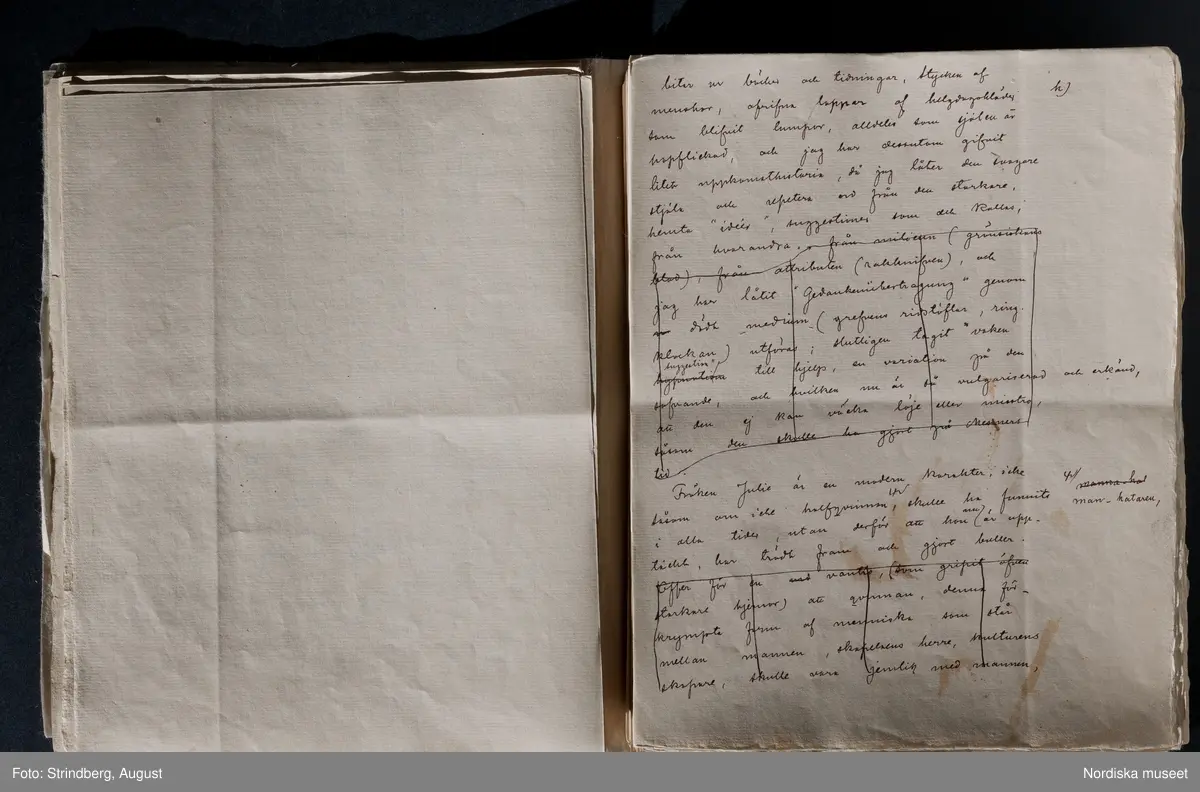 h)
bitar ur böcker och tidningar, stycken af
menskor, afrifna lappar af helgdagskläder
som blifvit lumpor, alldeles som själen är
hopflickad, och jag har dessutom gifvit
litet uppkomsthistoria, då jag låter den svagare
stjäla och repetera ord från den starkare,
hemta "idéer", suggestioner som det kallas,
från hvarandra. från miliöen (grönsiskans
blod), från attributen (rakknifven), och
jag har låtit "Gedankenübertragung" genom
dödt medium (grefvens ridstöflar, ring-
klockan) utföras; slutligen tagit "vaken
suggestion"
till hjelp, en variation på den
sofvande, och hvilken nu är så vulgariserad och erkänd,
att den ej kan väcka löje eller misstro,
såsom den skulle ha gjort på Mesmers
tid.
Fröken Julie är en modern karakter, icke
såsom om icke halfqvinnan, skulle ha funnits
manna-hat
man-hataren,
i alla tider, utan derför att hon nu är upp-
täckt, har trädt fram och gjort buller.
Offer för en vantro, (som gripit äfven
starkare hjernor) att qvinnan, denna för-
krympta form af menniska som står
mellan mannen, skapelsens herre, kulturens
skapare, skulle vara jemlik med mannen,
Foto: Strindberg, August
Nordiska museet